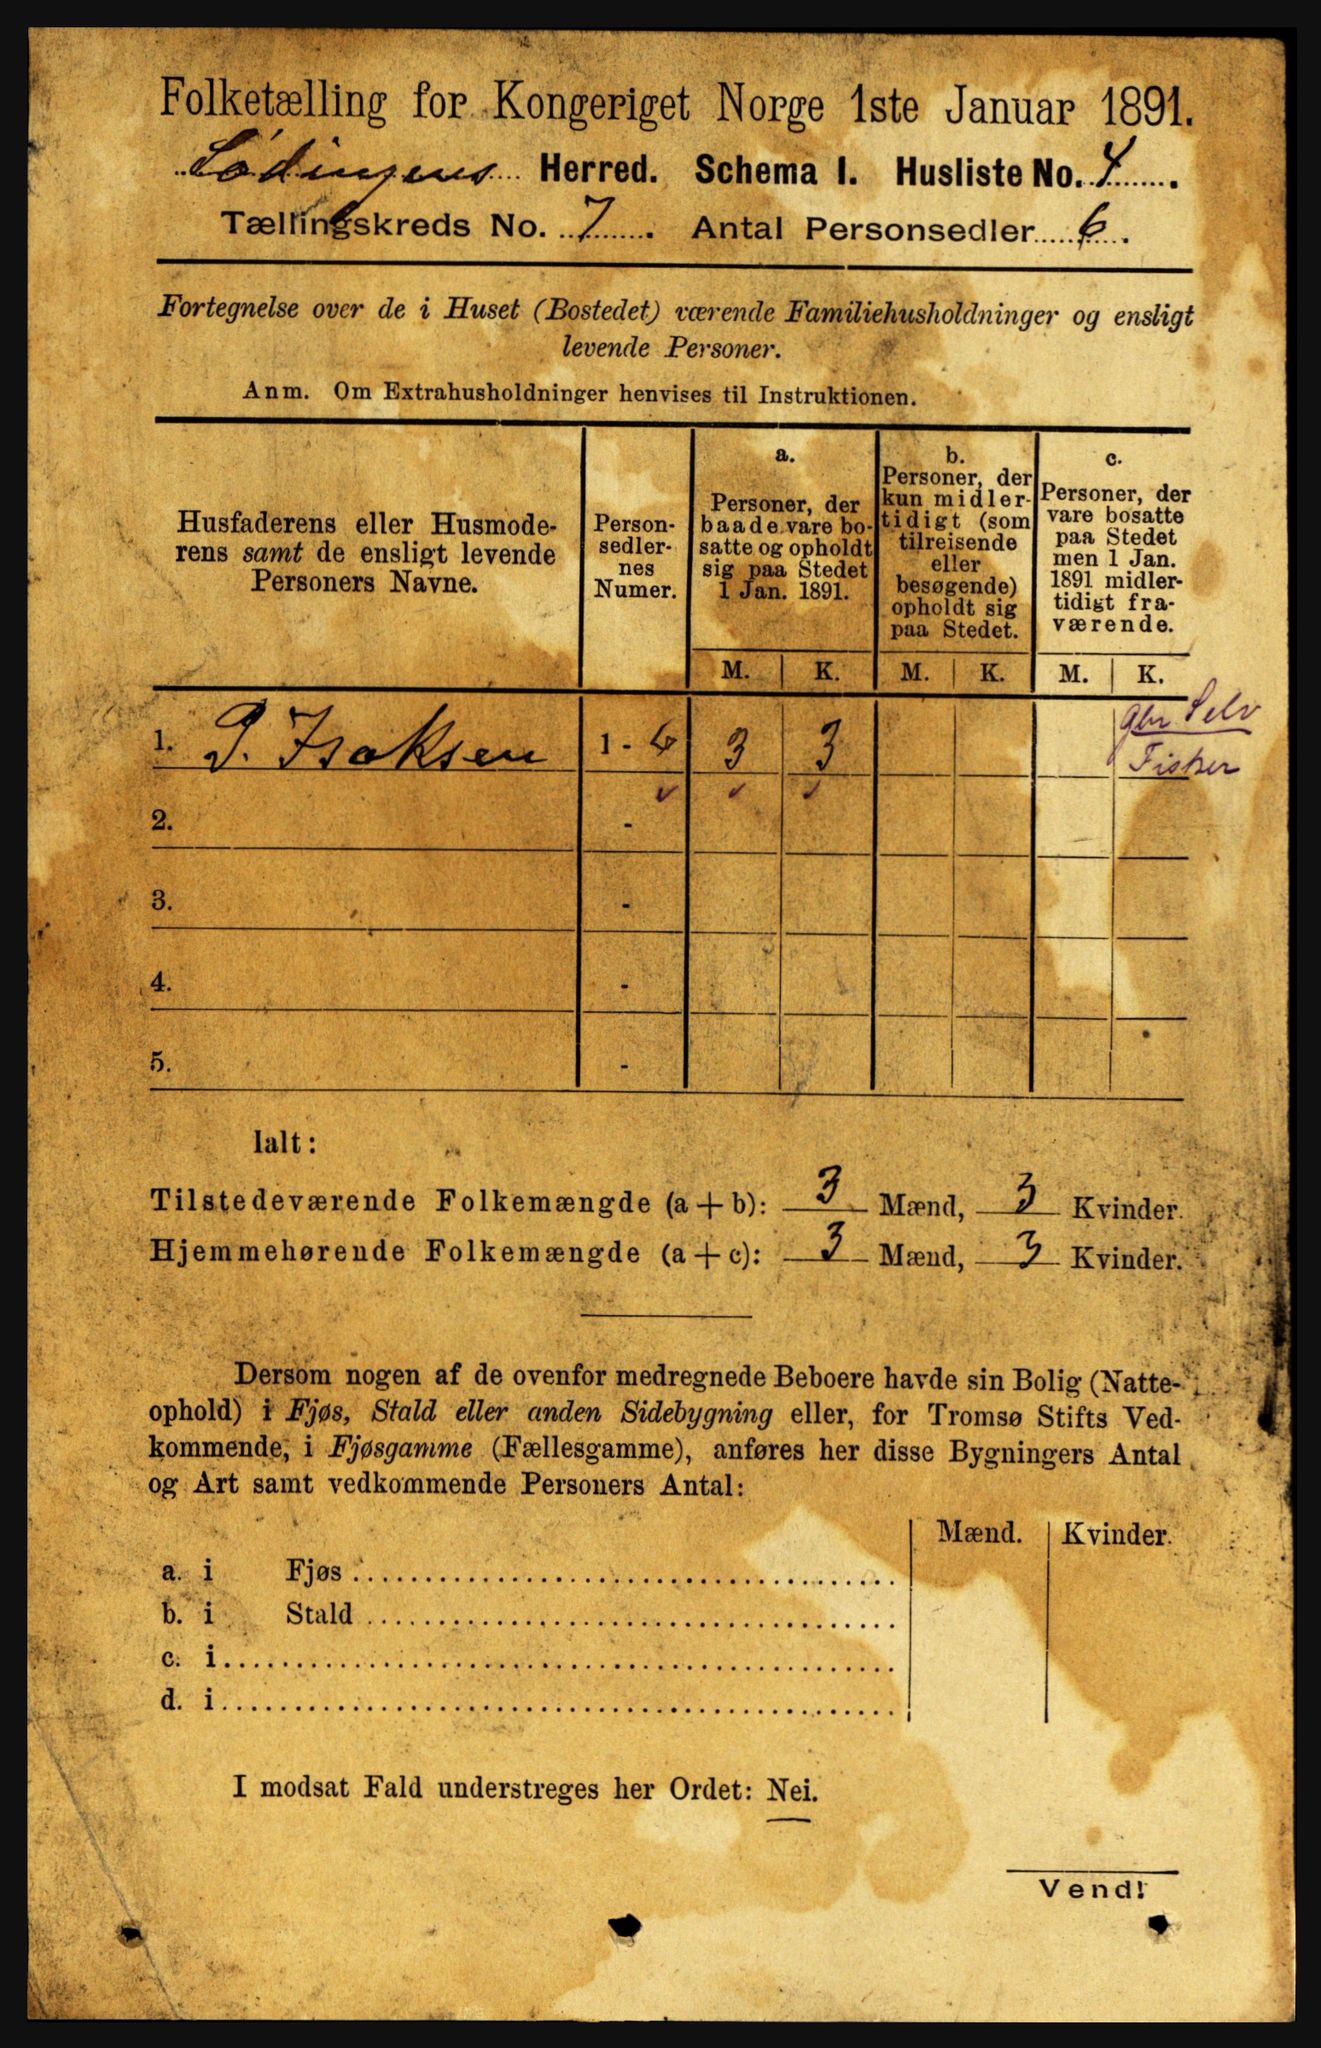 Folketælling for Kongeriget Norge 1ste Januar 1891.
Lødingens Herred. Schema I. Husliste No. 4.
Tællingskreds No. 7. Antal Personsedler 6.
Fortegnelse over de i Huset (Bostedet) værende Familiehusholdninger og ensligt
levende Personer.
Anm. Om Extrahusholdninger henvises til Instruktionen.
Husfaderens eller Husmode-
rens samt de ensligt levende
Personers Navne.
Person-
sedler-
nes
Numer.
a.
Personer, der
baade vare bo-
satte og opholdt
sig paa Stedet
1 Jan. 1891.
b.
Personer, der
kun midler-
tidigt (som
tilreisende
eller
besøgende)
opholdt sig
paa Stedet.
c.
Personer, der
vare bosatte
paa Stedet
men 1 Jan.
1891 midler-
tidigt fra-
værende.
M. K. M. K. M. K.
Gbr Selv
1. P. Isaksen 1 - 6 3 3 Fisker
2. -
3. -
4. -
5. -
Ialt:
Tilstedeværende Folkemængde (a + b): 3 Mænd, 3 Kvinder.
Hjemmehørende Folkemængde (a + c): 3 Mænd, 3 Kvinder.
Dersom nogen af de ovenfor medregnede Beboere havde sin Bolig (Natte-
ophold) i Fjøs, Stald eller anden Sidebygning eller, for Tromsø Stifts Ved-
kommende, i Fjøsgamme (Fællesgamme), anføres her disse Bygningers Antal
og Art samt vedkommende Personers Antal:
Mænd. Kvinder.
a. i Fjøs
b. i Stald
c. i
d. i
I modsat Fald understreges her Ordet: Nei.
Vend!